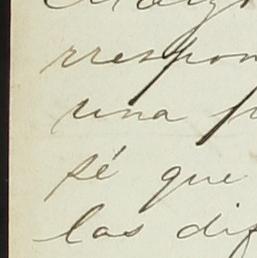 rrespon
una
sé que
las dif